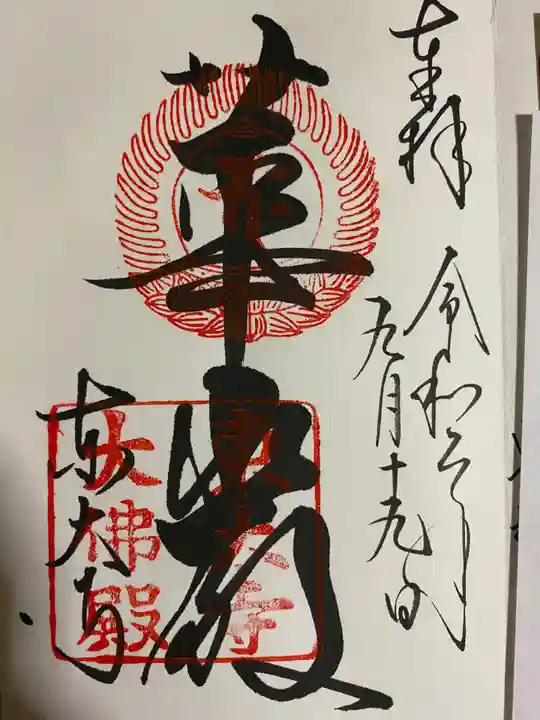 奉拝
令和元年
九月十九日
華厳
東大寺
東大寺
大佛殿